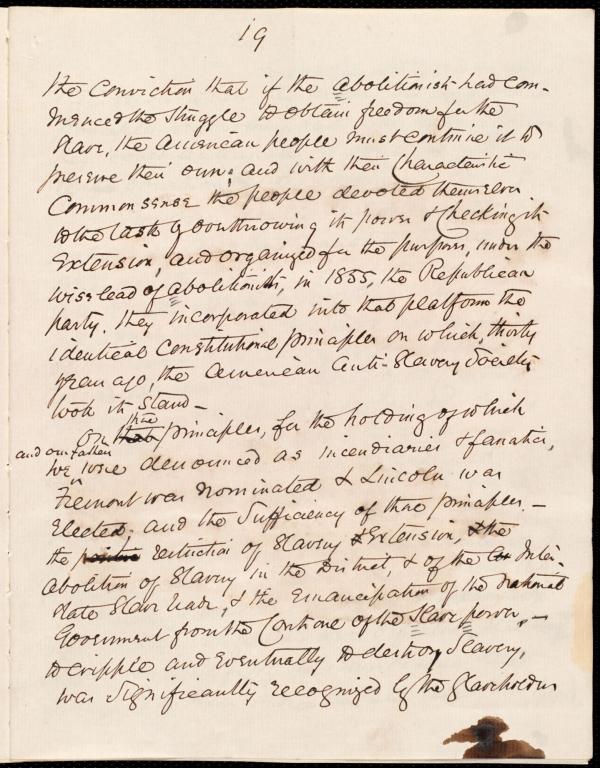 19
the conviction that if the abolitionist had com-
menced the struggle to obtain freedom for the
slave, the American people must continue it to
preserve their own; and with their characteristic
common sense the people devoted themselves
to the task of overthrowing its power & checking its
extension, and organized for the purpose, under the
wise lead of abolitionists, in 1855, the Republican
party. They incorporated into that platform the
identical Constitutional principles on which, thirty
years ago, the American Anti-Slavery Society
took its stand—
On these principles, for the holding of which
and our fathers
we were denounced as incendiaries & fanatics,
Fremont was nominated & Lincoln was
elected; and the sufficiency of those principles—
the restriction of Slavery Extension, the
abolition of Slavery in the District, & of the Inter-
state Slave trade, & the emancipation of the national
Government from the Control of the Slave power,—
to cripple and eventually to destroy Slavery,
was significantly recognized by the slaveholders